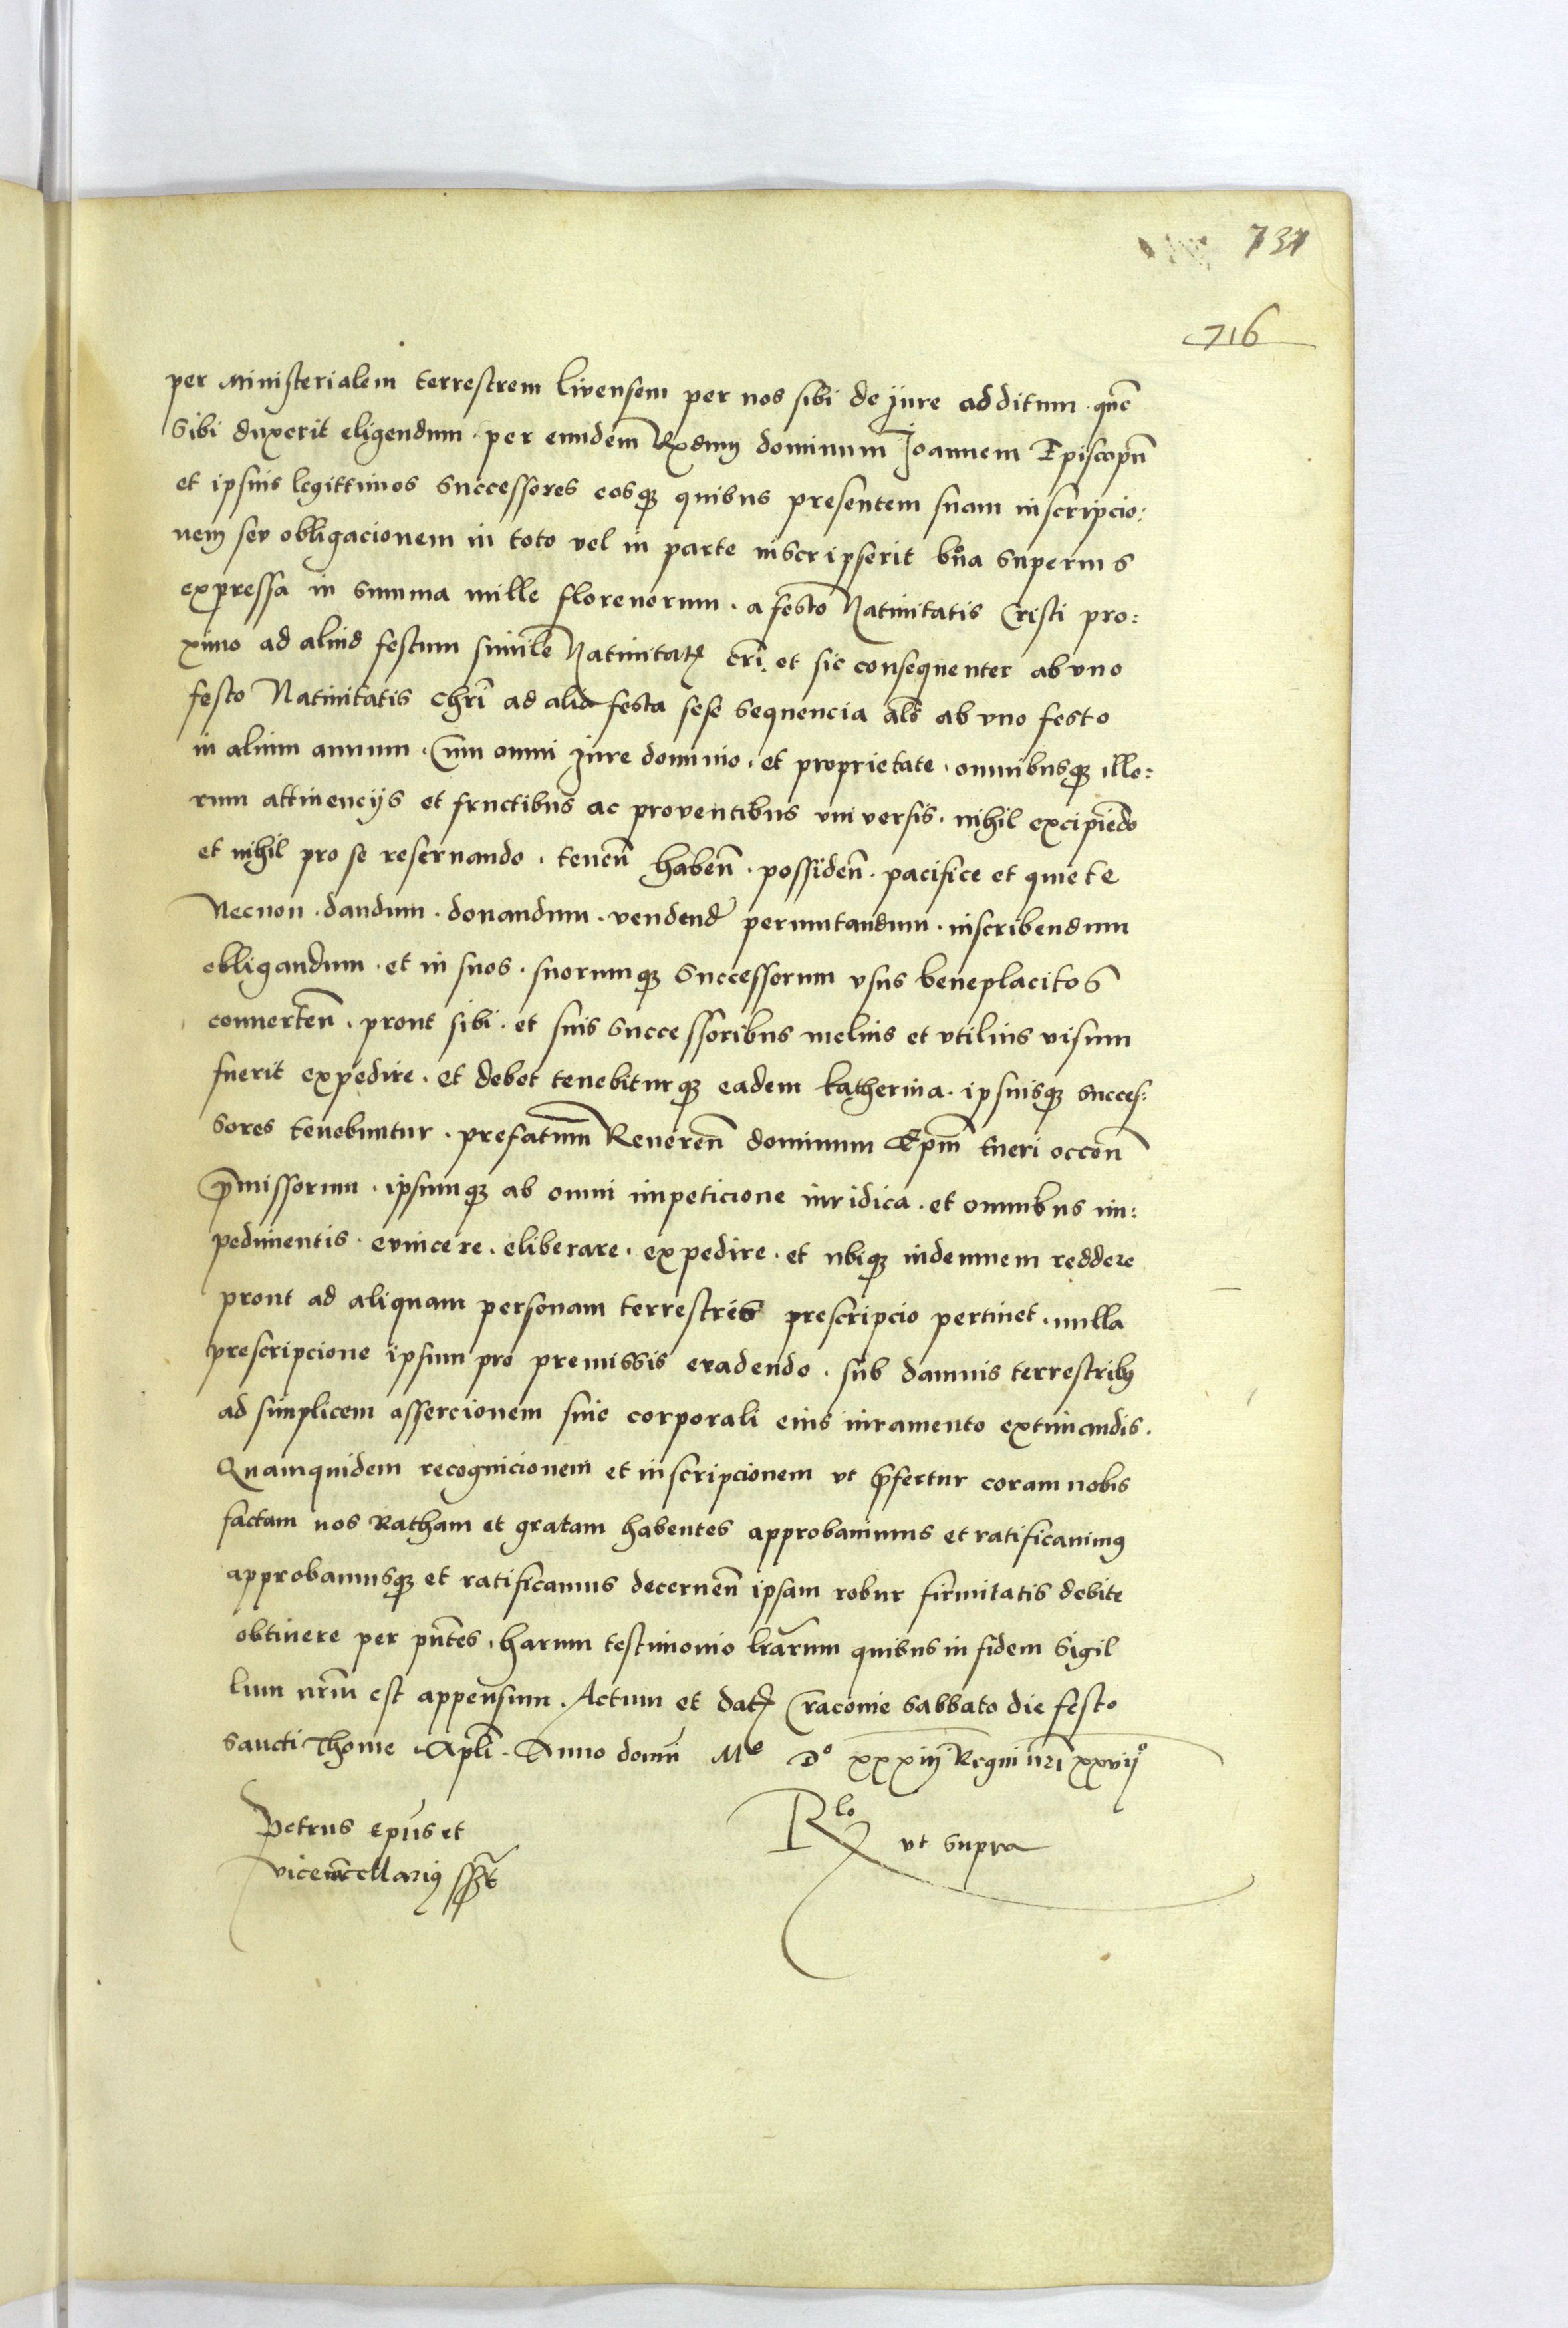 731
716
per ministerialem terrestrem livensem per nos sibi de jure additum . que͞
sibi duxerit eligendum . per eundem͞ Rx͞dmu͞ dominum Joannem Episcopu͞
et ipsuis legittimos successores eosq; quibus presentem suam inscripcio:
nem seu obligacionem in toto vel in parte inscripserit bo͞na superius
expressa in summa mille florenorum . a festo Natiuitatis Cristi pro:
ximo ad aliud festum simile Natiuitat; cri͞. et sic consequenter ab vno
festo Natiuitatis chri͞ ad alia festa sese sequencia al͞s ab vno festo
in alium annum . Cum omni jure dominio . et proprietate . omnibusq; illo:
rum attinencijs et fructibus ac prouentibus vniuersis . nihil excipie͞do
et nihil pro se reseruando . tenen͞ haben͞ . possiden͞ . pacifice et quiete
Necnon . dandum . donandum . vendend͞ permutandum . inscribendum
obligandum . et in suos . suorumq; successorum vsus beneplacitos
conuerten͞ . prout sibi . et suis successoribus melius et vtilius visum
fuerit expedire . et debet tenebiturq; eadem katherina . ipsuisq; succes:
sores tenebuntur . prefatum͞ Reueren͞ dominum Ep͞m tueri occon͞
p͞missorum . ipsumq; ab omni impeticione iuridica . et omnibus im:
pedimentis . euincere . eliberare . expedire . et ubiq; indemnem reddere
prout ad aliquam personam terrestris prescripcio pertinet . nulla
prescripcione ipsum pro premissis euadendo . sub damnis terrestrib;
ad simplicem assercionem siue corporali eius iuramento extimandis .
Quamquidem recognicionem et inscripcionem vt p͞fertur coram nobis
factam nos Ratham et gratam habentes approbauimus et ratificauim;
approbamusq; et ratificamus decernen͞ ipsam robur firmitatis debite
obtinere per pn͞tes . harum testimonio lr͞arum quibus in fidem sigil
lum nr͞m est appensum . Actum et dat; Cracouie sabbato die festo
sancti Thome Apl͞i . Anno domi͞ Mo Do xxxiij Regni nr͞i xxvijo
Petrus ep͞us et
vicecancellari; ss͞t
Rlo vt supra